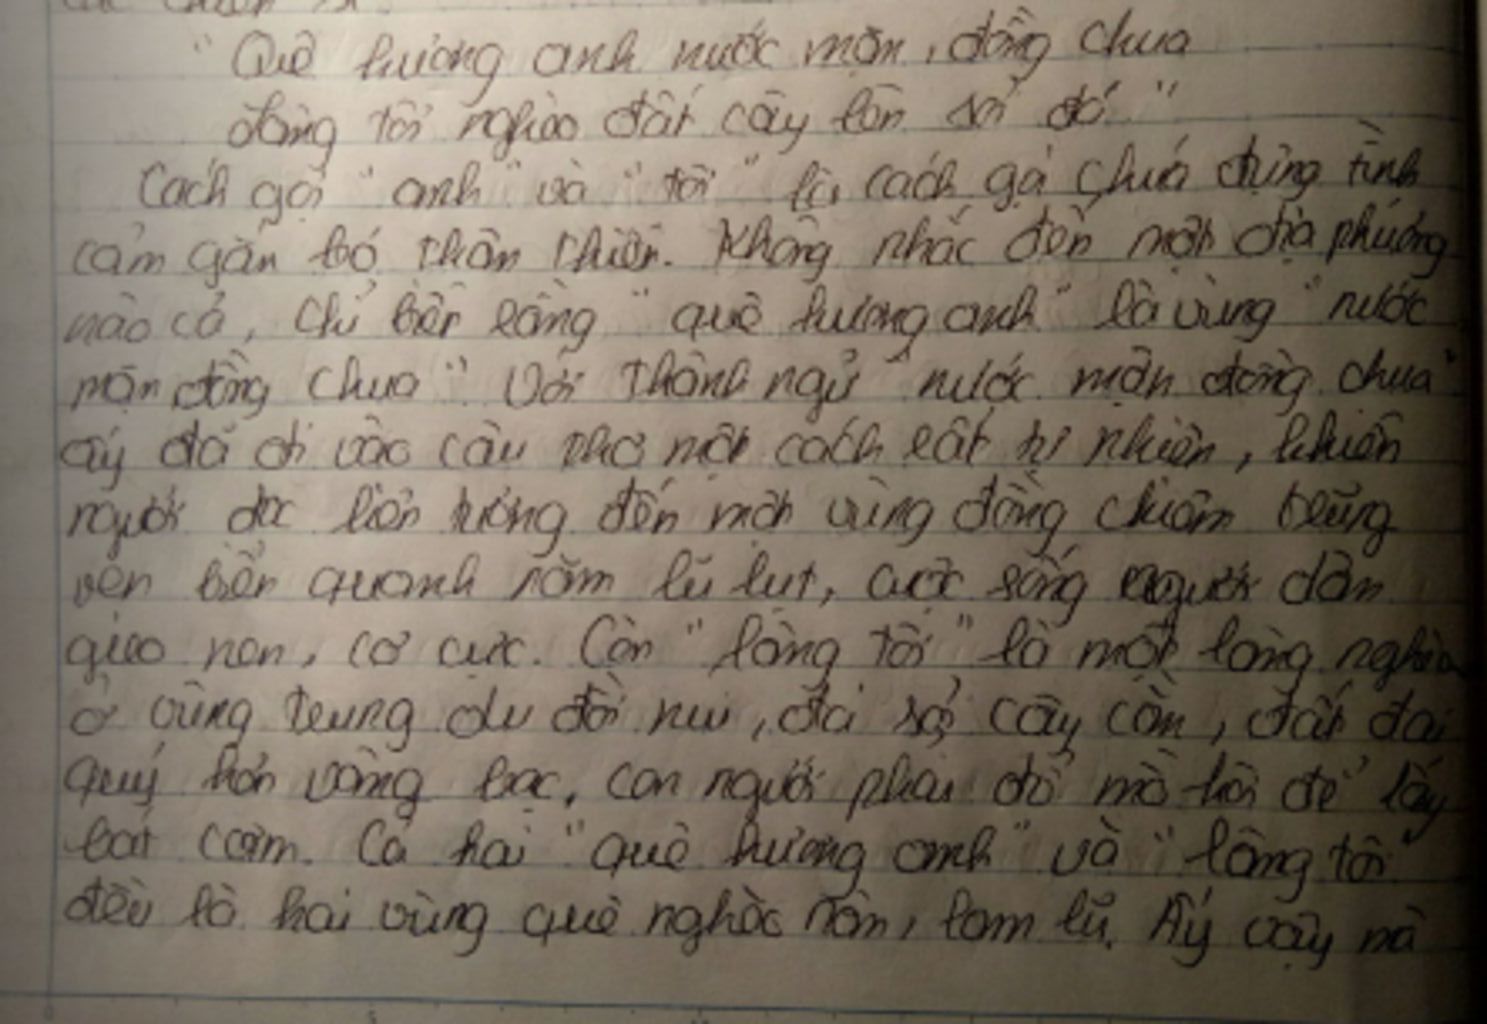 "Quê hương anh nước mặn, đồng chua
Làng tôi nghèo đất cày lên sỏi đá"
Cách gọi "anh" và "tôi" là cách gọi chứa đựng tình
cảm gắn bó thân thiện. Không nhắc đến một địa phương
nào cả, chỉ biết rằng "quê hương anh" là vùng "nước
mặn đồng chua" Với thành ngữ "nước mặn đồng chua"
ấy đã đi vào câu thơ một cách rất tự nhiên, khiến
người đọc liên tưởng đến một vùng đồng chiêm trũng
ven biển quanh năm lũ lụt, cuộc sống người dân
gieo neo, cơ cực. Còn "làng tôi" là một làng nghèo
ở vùng trung du đồi núi, đá sỏi cây cằn, đất đai
quý hơn vàng bạc, con người phải đổ mồ hôi để lấy
bát cơm. Cả hai "quê hương anh" và "làng tôi"
đều là hai vùng quê nghèo nàn, lam lũ. Ấy vậy mà